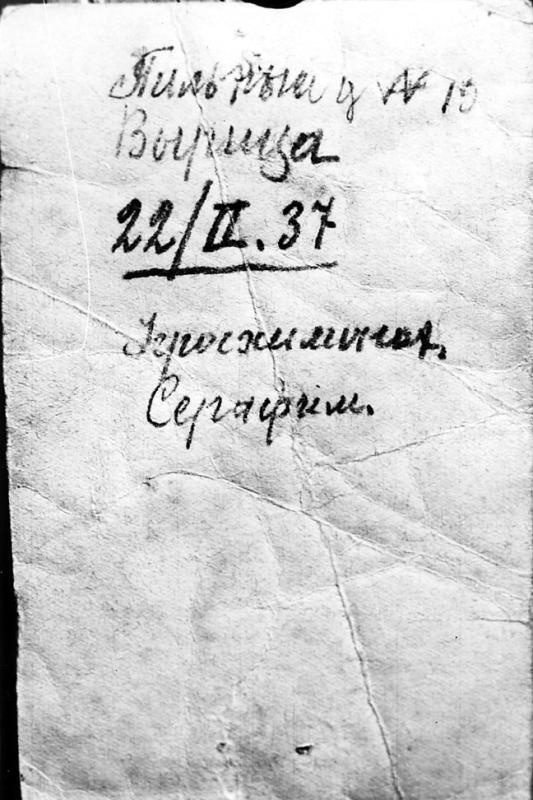 Пильный № 10
Вырица
22/II. 37
Іеросхимонах.
Серафим.